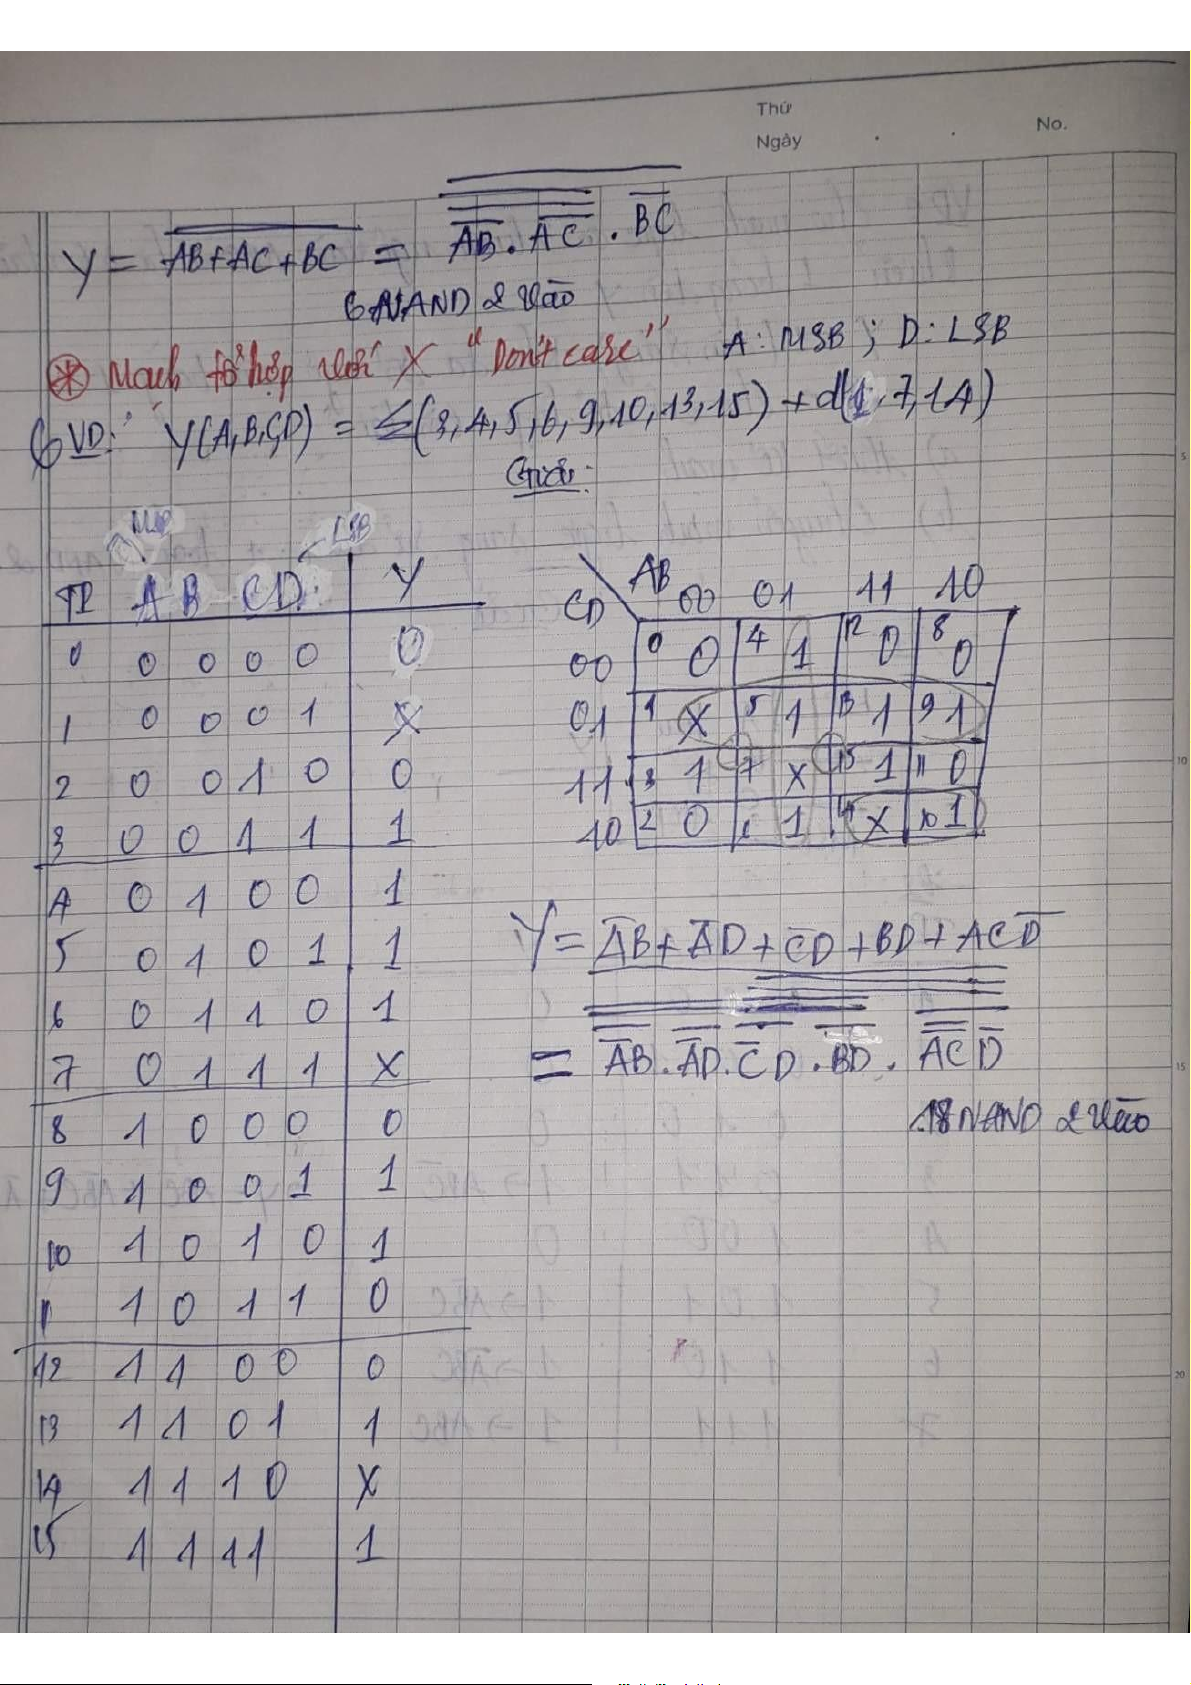 Thứ
Ngày
No.
Y = \overline{AB+AC+BC} = \overline{\overline{\overline{\overline{AB}.\overline{AC}}}.\overline{BC}}
6 NAND 2 vào
* Mạch tổ hợp với X "Don't care" A: MSB ; D: LSB
VD: Y(A,B,C,D) = Σ(3,4,5,6,9,10,13,15) + d(1,7,14)
Giải:
MSB LSB
TP A B C D Y
0 0 0 0 0 0
1 0 0 0 1 X
2 0 0 1 0 0
3 0 0 1 1 1
4 0 1 0 0 1
5 0 1 0 1 1
6 0 1 1 0 1
7 0 1 1 1 X
8 1 0 0 0 0
9 1 0 0 1 1
10 1 0 1 0 1
11 1 0 1 1 0
12 1 1 0 0 0
13 1 1 0 1 1
14 1 1 1 0 X
15 1 1 1 1 1
AB 00 01 11 10
CD
00 0 0 4 1 12 0 8 0
01 1 X 5 1 13 1 9 1
11 3 1 7 X 15 1 11 0
10 2 0 6 1 14 X 10 1
Y = \overline{A}B + \overline{A}D + \overline{C}D + BD + AC\overline{D}
= \overline{\overline{A}B}.\overline{\overline{A}D}.\overline{\overline{C}D}.\overline{BD}.\overline{\overline{\overline{AC}}\overline{D}}
18 NAND 2 vào
5
10
15
20